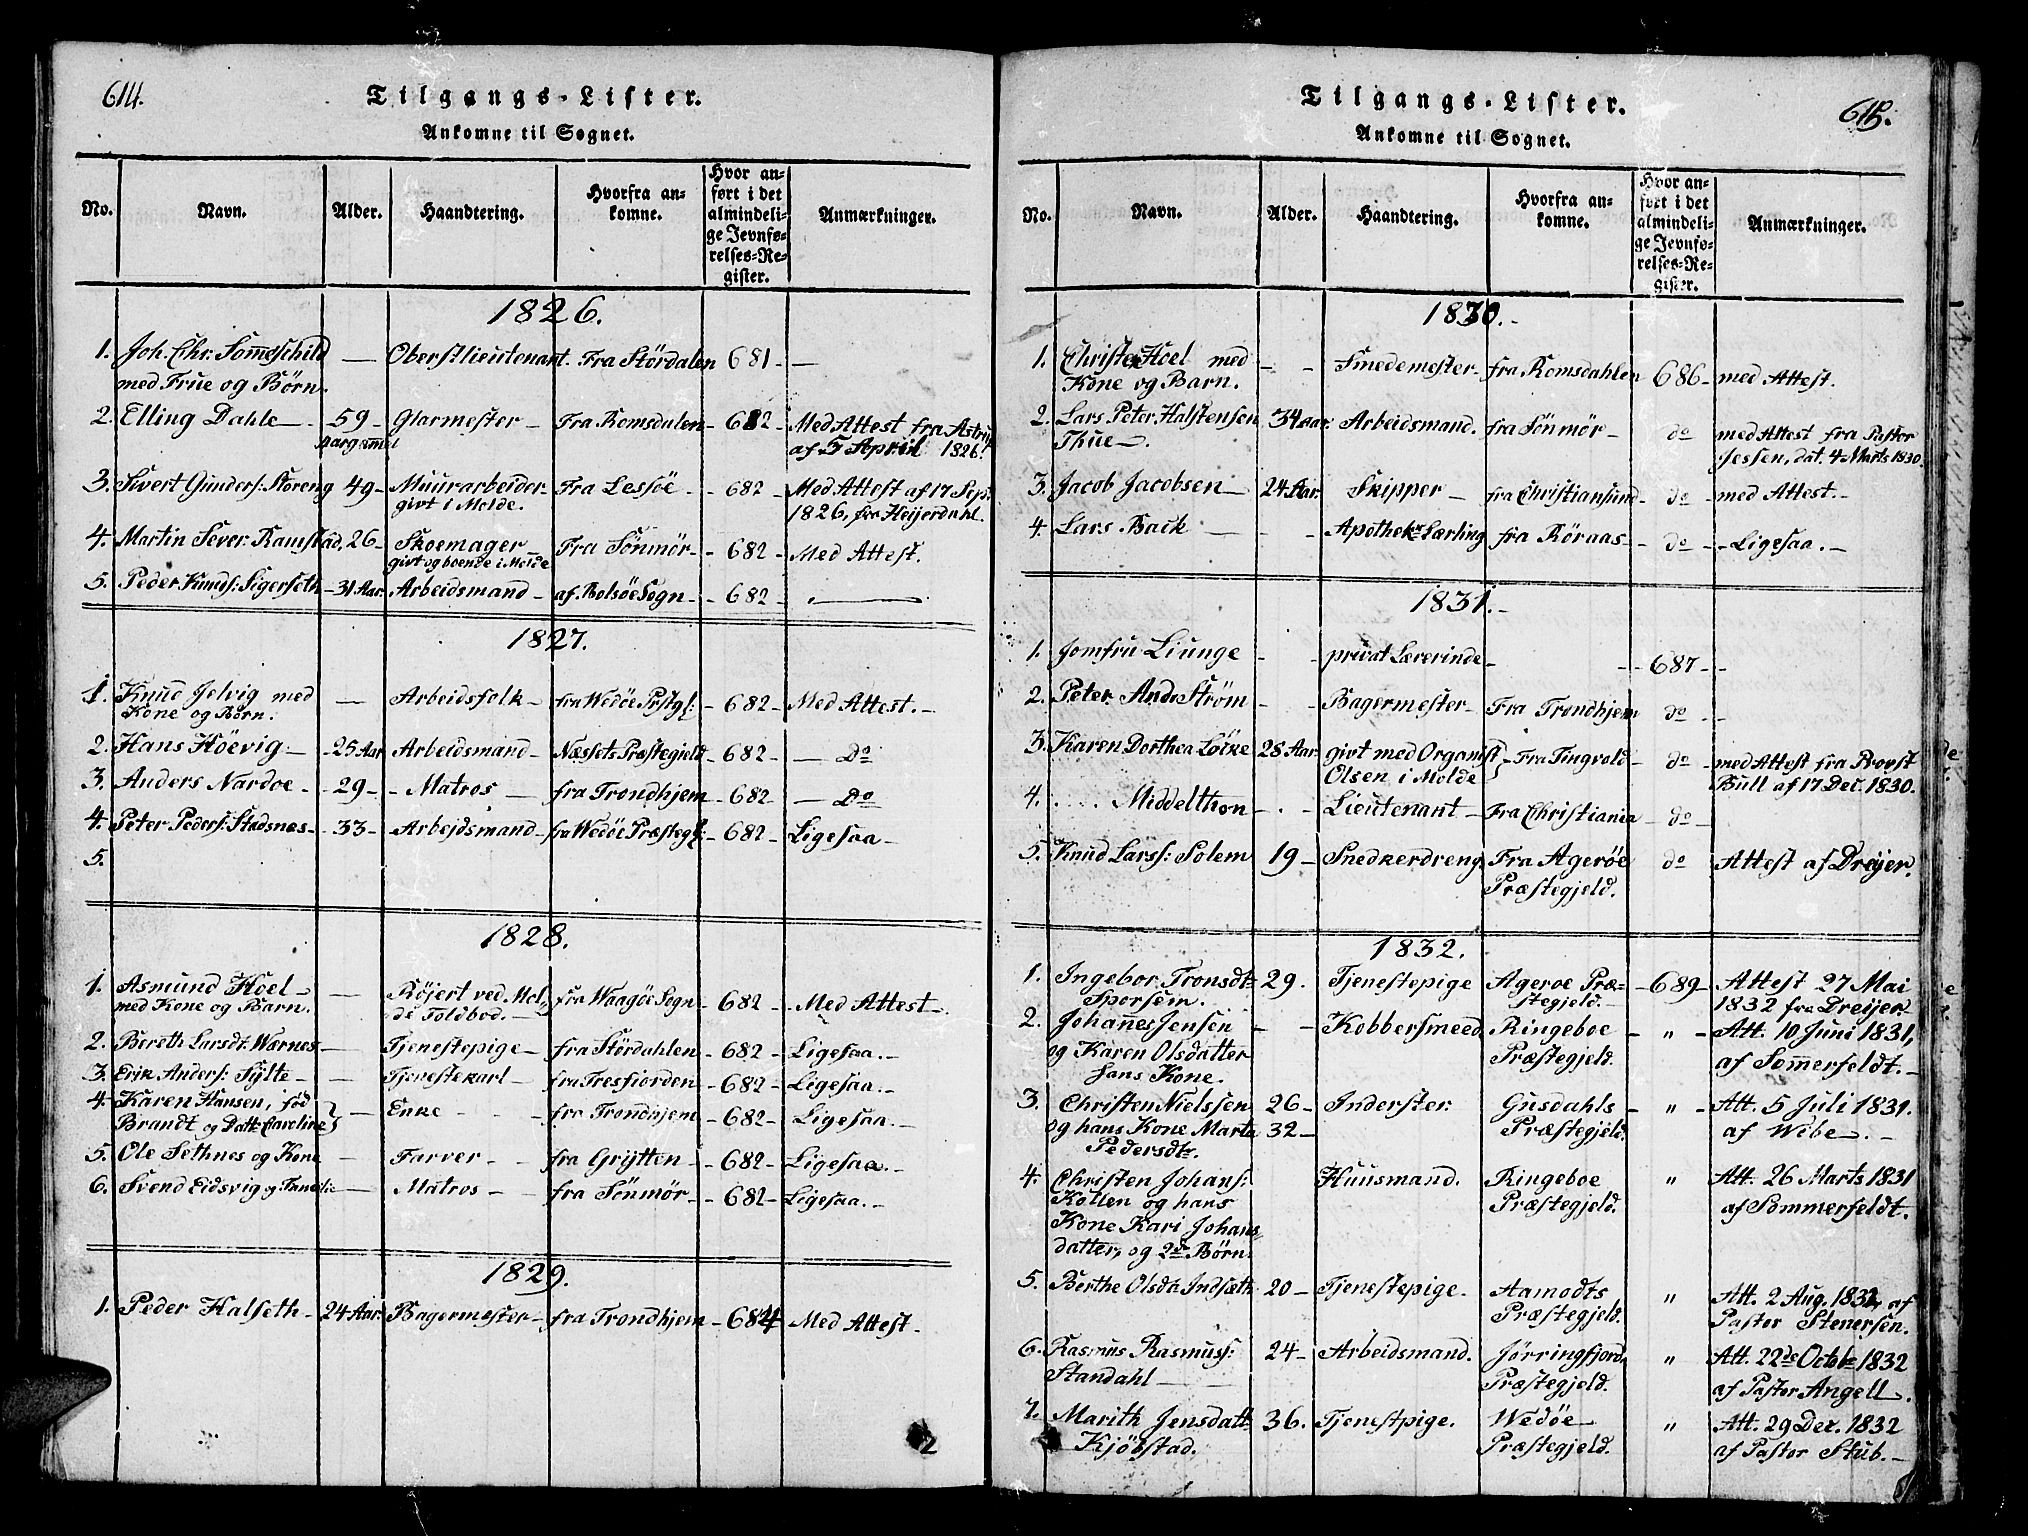 614.
Tilgangs-Lister.
Ankomne til Sognet.
No. Navn. Alder. Haandtering. Hvorfra an-
komne. Hvor an-
ført i det
almindeli-
ge Jevnfø-
relses-Re-
gister. Anmærkninger.
1826.
1. Joh. Chr. Som̅eschild — Oberstlieutenant. Fra Stördalen 681 - —
med Frue og Børn.
2. Elling Dahle — 59 - Glarmester - Fra Romsdalen - 682 - Med Attest fra
Aar gam̅el af 5 April 1826.
3. Sivert Gunders: Storeng 49 - Muurarbeider - Fra Lessöe - 682 - Med Attest af 17 Sep.
givt i Molde. 1826, fra Heijerdahl.
4. Martin Sever. Ramstad, 26 - Skoemager Fra Sönmör - 682 - Med Attest.
givt og boende i Molde
5. Peder Knuds: Sigerseth - 31 Aar. Arbeidsmand - af Bolsöe Sogn - 682 - —
1827.
1. Knud Jelvig med — Arbeidsfolk - fra Wedöe Prstgl: - 682 - Med Attest. -
Kone og Børn.
2. Hans Höevig — 25 Aar Arbeidsmand - Næssets Præstegield 682 - — Do
3. Anders Nardoe - 29 - - Matros — fra Trondhjem - 682 - — Do
4. Peter Peders: Stadsnes - 33 - Arbejdsmand - fra Wedöe Præstegl: - 682 - Ligesaa -
5.
1828.
1. Asmund Hoel - — Röjert ved Mol- fra Waagöe Sogn - 682 - Med Attest -
med Kone og Barn. de Toldbod. -
2. Bereth Larsdt. Wærnes - — Tjenestepige - fra Stördahlen - 682 - Ligesaa. -
3. Erik Anders: Sylte - — Tjenestekarl - fra Tresfiorden - 682 - Ligesaa. -
4. Karen Hansen, fød — Enke - - fra Trondhjem - 682 - Ligesaa. -
Brandt og Datt. Caroline
5. Ole Sethnes og Kone — Farver - - fra Grytten - - 682 - Ligesaa. -
6. Svend Eidsvig og Familie — Matros - - fra Sönmör - - 682 - Ligesaa. -
1829.
1. Peder Halseth - 24 Aar. Bagermester - fra Trondhjem - 684 Med Attest -
2
615.
Tilgangs-Lister.
Ankomne til Sognet.
No. Navn. Alder. Haandtering. Hvorfra an-
komne. Hvor an-
ført i det
almindeli-
ge Jevnfø-
relses-Re-
gister. Anmærkninger.
1830. -
1. Christen Hoel med - - Smedemester - fra Romsdahlen 686 - med Attest.
Kone og Barn.
2. Lars Peter Halstensen 34 Aar. Arbeidsmand. fra Sönmör - do - med Attest fra Pastor
Thue —. Jessen, dat. 4 Marts 1830.
3. Jacob Jacobsen — 24 Aar. Skipper - fra Christiansund - do - med Attest. -
4. Lars Back — - - Apothek. Lærling fra Röraas - do - - Ligesaa. -
1831. -
1. Jomfru Liunge - - privat Lærerinde - - - 687 - -
2. Peter And. Ström - - Bagermester - Fra Trondhjem do - -
3. Karen Dorthea Löcke 28 Aar. givt med Organist - Fra Tingvold - do - med Attest fra Provst
Olsen i Molde Bull af 17 Dec. 1830.
4. ..... Middelthon - . - Lieutenant - Fra Christiania - do -
5. Knud Larss: Solem 19 - Snedkerdreng Fra Ageröe do Attest af Dreyer.
Præstegjeld.
1832.
1. Ingebor Tronsdt. 29. Tjenestepige Ageroe Præ- - 689 - Attest 27 Mai
Sporsem. stegjeld. - 1832 fra Dreijer
2. Johan̅es Jensen - - Kobbersmeed Ringeboe - " - Att. 10 Juni 1831,
og Karen Olsdatter Præstegjeld. af Som̅erfeldt. -
hans Kone.
3. Christen Nielssen 26 - Inderster. Gusdahls - " - Att. 5 Juli 1831.
og hans Kone Marta 32 - Præstegjeld. af Wibe -. -
Pedersdtr.
4. Christen Johans: Huusmand. Ringeboe " Att. 26 Marts 1831
Kollen og hans Præstegjeld. af Som̅erfeldt.
Kone Kari Johans
datter, og 2de Børn.
5. Berthe Olsda. Indsæth 20 - Tjenestepige. Aamodts " Att. 2 Aug. 1832, af
Præstegjeld. Pastor Stenersen.
6. Rasmus Rasmuss: 24 - Arbeidsmand. Jørringfjord " Att. 22de Octobr. 1832
Standahl — Præstegjeld. af Pastor Angell.
7. Marith Jensdatt. 36. Tjenestpige. Wedöe " Att. 29 Dec. 1832
Kjöbstad. Præstegjeld. af Pastor Stub. -